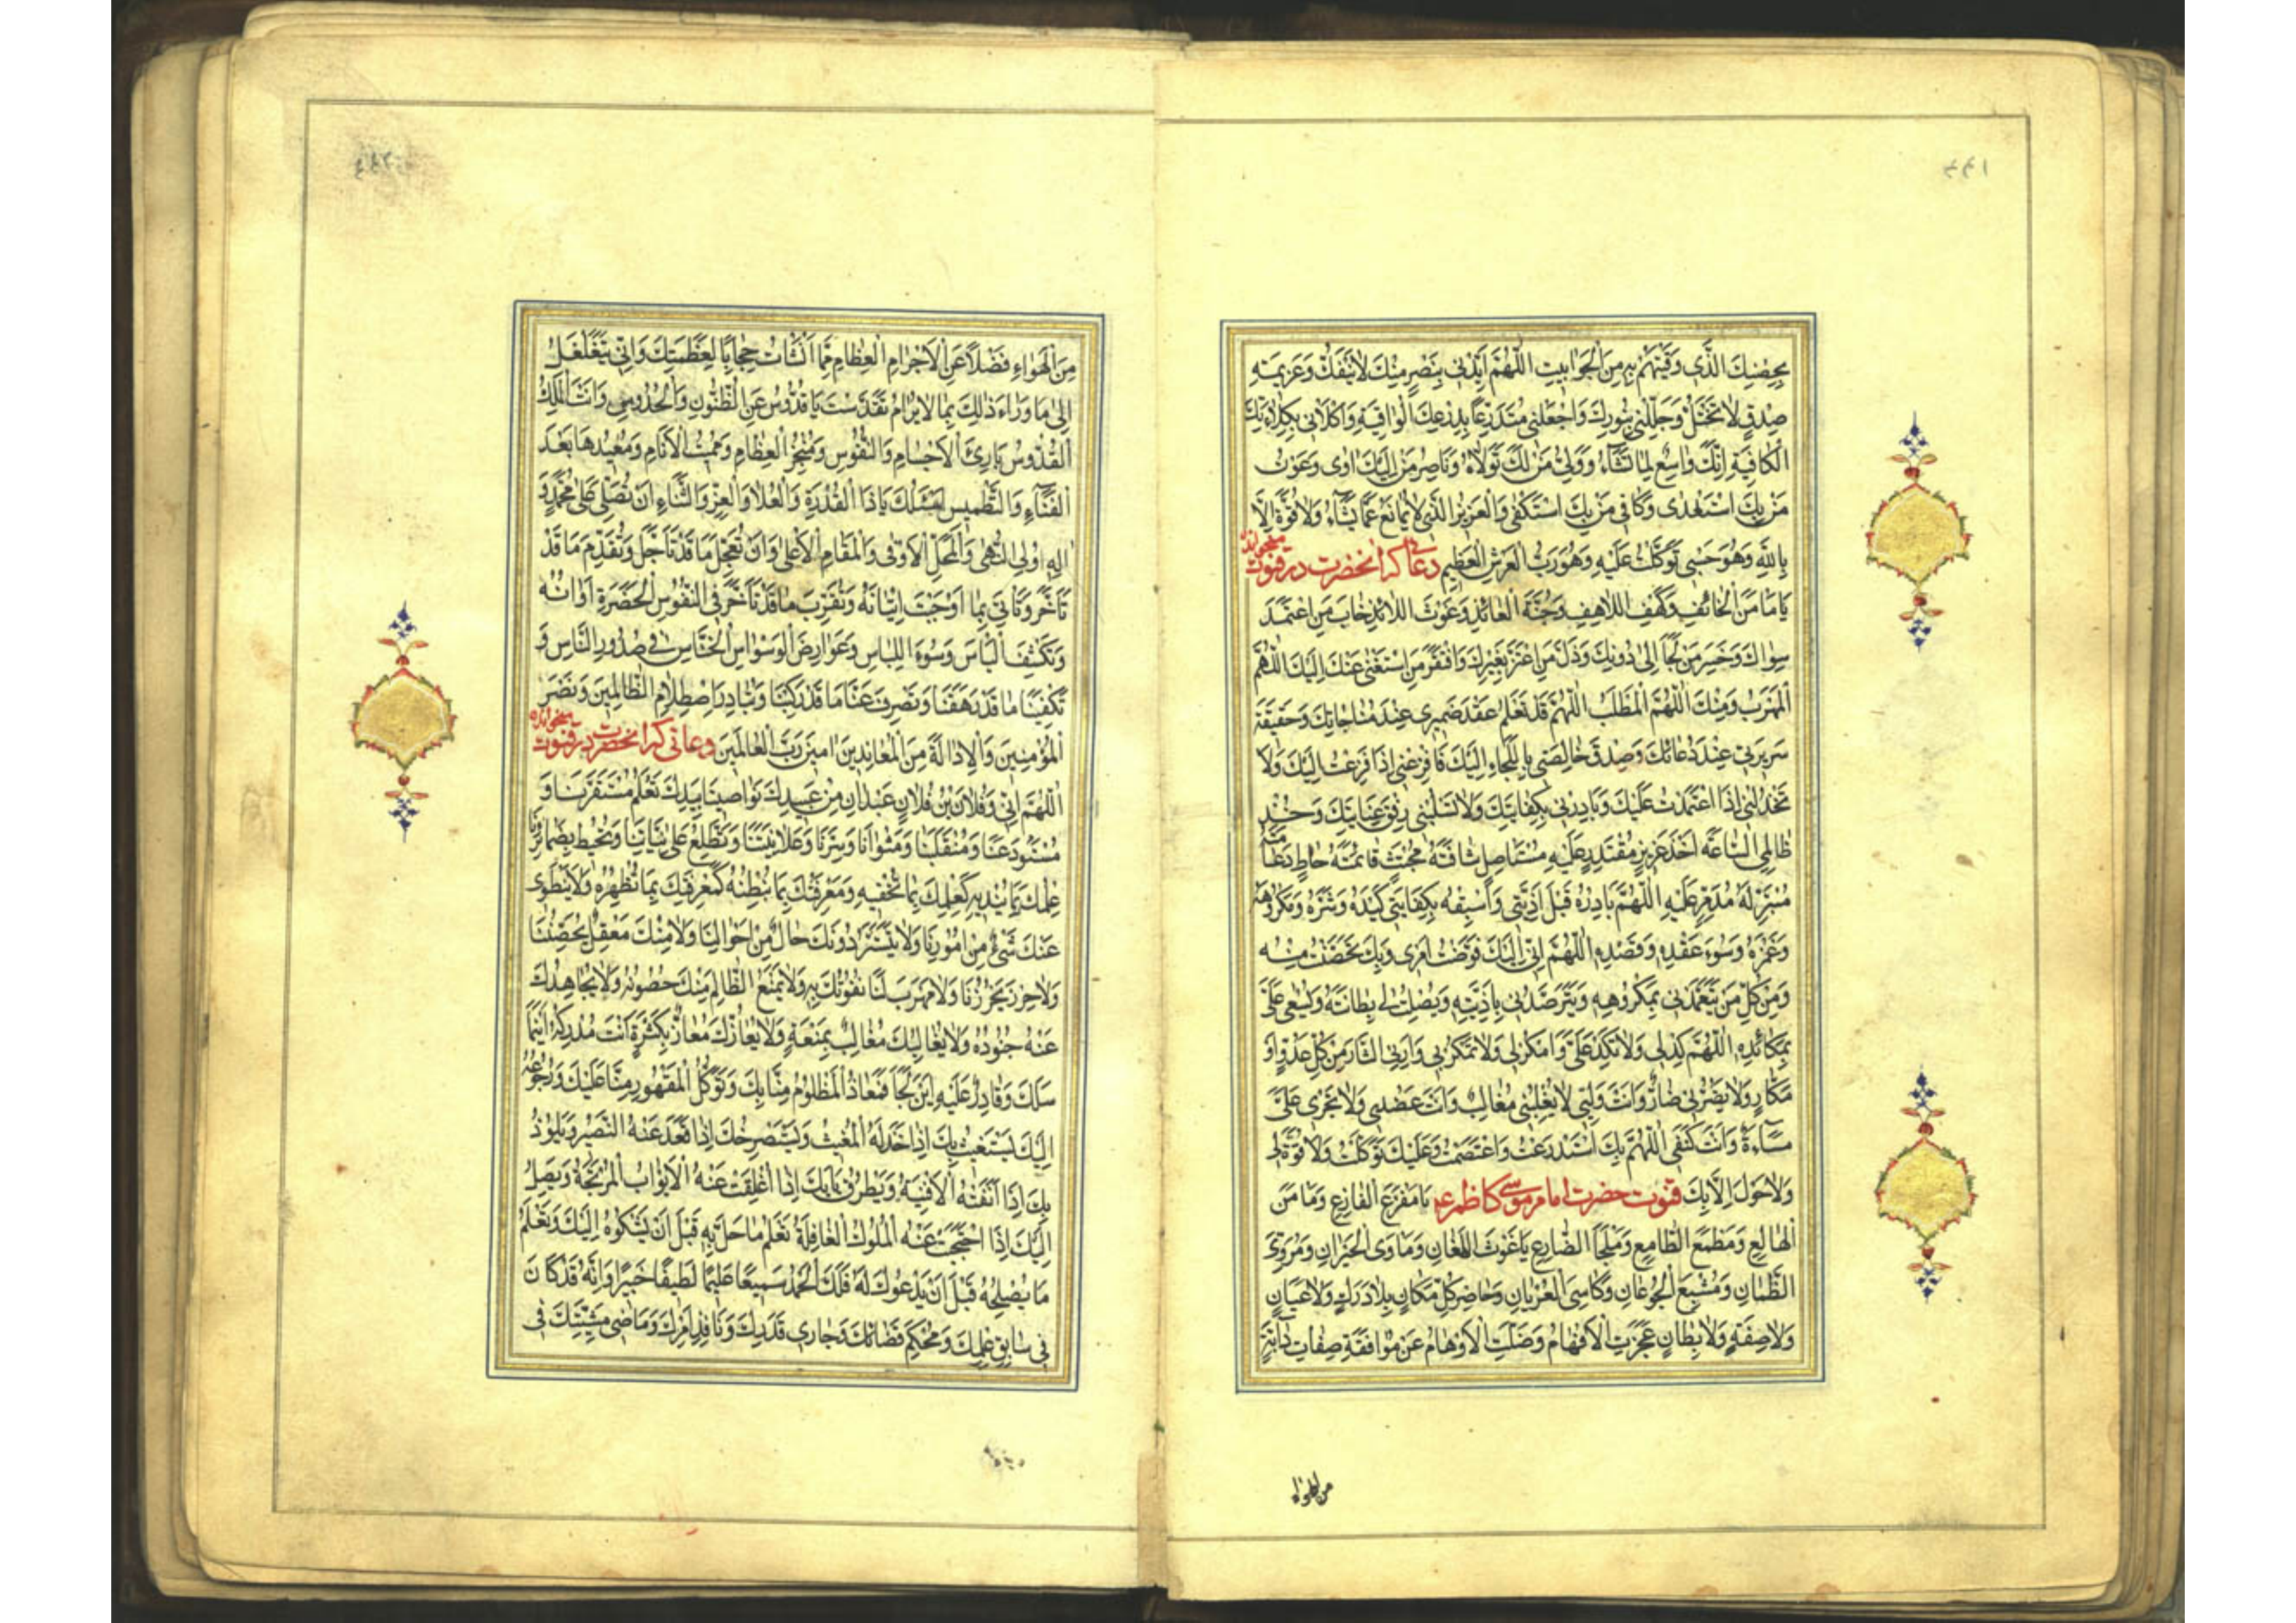 ۴۴۱
بِحِصْنِكَ الَّذِى وَقَيْتَهُمْ بِهِ مِنَ الْجَوَابِيتِ اَللّٰهُمَّ اَيِّدْنِى بِنَصْرٍ مِنْكَ لَا يَنْفَكُّ وَعَزِيمَةِ
صِدْقٍ لَا تَخْتَلُّ وَجَلِّلْنِى بِنُورِكَ وَاجْعَلْنِى مُتَدَرِّعًا بِدِرْعِكَ الْوَاقِيَةِ وَاكْلَأْنِى بِكِلَاءَتِكَ
الْكَافِيَةِ اِنَّكَ وَاسِعٌ لِمَا تَشَاءُ وَوَلِىُّ مَنْ لَكَ تَوَلَّاهُ وَنَاصِرُ مَنْ اِلَيْكَ اٰوٰى وَعَوْنُ
مَنْ بِكَ اسْتَعْدٰى وَكَافِى مَنْ بِكَ اسْتَكْفٰى وَالْعَزِيزُ الَّذِى لَا يُمَانَعُ عَمَّا يَشَاءُ وَلَا قُوَّةَ اِلَّا
بِاللّٰهِ وَهُوَ حَسْبِى تَوَكَّلْتُ عَلَيْهِ وَهُوَ رَبُّ الْعَرْشِ الْعَظِيمِ دعائی که آنحضرت در قنوت میخوانده
يَا مَأْمَنَ الْخَائِفِ وَكَهْفَ اللَّاهِفِ وَجُنَّةَ الْعَائِذِ وَغَوْثَ اللَّائِذِ خَابَ مَنِ اعْتَمَدَ
سِوَاكَ وَخَسِرَ مَنْ لَجَأَ اِلٰى دُونِكَ وَذَلَّ مَنِ اعْتَزَّ بِغَيْرِكَ وَافْتَقَرَ مَنِ اسْتَغْنٰى عَنْكَ اِلَيْكَ اللّٰهُمَّ
الْمَهْرَبُ وَمِنْكَ اللّٰهُمَّ الْمَطْلَبُ اَللّٰهُمَّ قَدْ تَعْلَمُ عَقْدَ ضَمِيرِى عِنْدَ مُنَاجَاتِكَ وَحَقِيقَةَ
سَرِيرَتِى عِنْدَ دُعَائِكَ وَصِدْقَ خَالِصَتِى بِاللَّجَاءِ اِلَيْكَ فَافْزِعْنِى اِذَا فَزِعْتُ اِلَيْكَ وَلَا
تَخْذُلْنِى اِذَا اعْتَمَدْتُ عَلَيْكَ وَبَادِرْنِى بِكِفَايَتِكَ وَلَا تَسْلُبْنِى رِفْقَ عِنَايَتِكَ وَخُذْ
ظَالِمِى السَّاعَةَ اَخْذَ عَزِيزٍ مُقْتَدِرٍ عَلَيْهِ مُسْتَأْصِلٍ شَافَتَهُ مُجْتَثٍّ قَائِمَتَهُ حَاطٍّ دَعَامَتَهُ
مُتَبِّرٍ لَهُ مُدَمِّرٍ عَلَيْهِ اَللّٰهُمَّ بَادِرْهُ قَبْلَ اَذِيَّتِى وَاسْبِقْهُ بِكِفَايَتِى كَيْدَهُ وَشَرَّهُ وَمَكْرُوهَهُ
وَغَمْزَهُ وَسُوءَ عَقْدِهِ وَقَصْدِهِ اَللّٰهُمَّ اِنِّى اِلَيْكَ فَوَّضْتُ اَمْرِى وَبِكَ تَحَصَّنْتُ مِنْهُ
وَمِنْ كُلِّ مَنْ يَتَعَمَّدُنِى بِمَكْرُوهِهِ وَيَتَرَصَّدُنِى بِاَذِيَّتِهِ وَيُصْلِتُ لِى بِطَانَتَهُ وَيَسْعٰى عَلَىَّ
بِمَكَائِدِهِ اَللّٰهُمَّ كِدْ لِى وَلَا تَكِدْ عَلَىَّ وَامْكُرْ لِى وَلَا تَمْكُرْ بِى وَاَرِنِى الثَّارَ مِنْ كُلِّ عَدُوٍّ اَوْ
مَكَّارٍ وَلَا يَضُرُّنِى ضَارٌّ وَاَنْتَ وَلِيِّى لَا يَغْلِبُنِى مُغَالِبٌ وَاَنْتَ عَضُدِى وَلَا تَجْرِى عَلَىَّ
مَسَاءَةٌ وَاَنْتَ كَنَفِى اَللّٰهُمَّ بِكَ اسْتَدْرَعْتُ وَاعْتَصَمْتُ وَعَلَيْكَ تَوَكَّلْتُ وَلَا قُوَّةَ لِى
وَلَا حَوْلَ اِلَّا بِكَ قنوت حضرت امام موسی کاظم ع يَا مَفْزَعَ الْفَازِعِ وَمَأْمَنَ
الْهَالِعِ وَمَطْمَعَ الطَّامِعِ وَمَلْجَأَ الضَّارِعِ يَا غَوْثَ اللَّهْفَانِ وَمَأْوَى الْحَيْرَانِ وَمُرَوِّىَ
الظَّمْاٰنِ وَمُشْبِعَ الْجُوعَانِ وَكَاسِىَ الْعُرْيَانِ وَحَاضِرَ كُلِّ مَكَانٍ بِلَا دَرَكٍ وَلَا عِيَانٍ
وَلَا صِفَةٍ وَلَا بِطَانٍ عَجَزَتِ الْاَفْهَامُ وَضَلَّتِ الْاَوْهَامُ عَنْ مُوَافَقَةِ صِفَاتِ دَابَّةٍ
من الهواء
مِنَ الْهَوَاءِ فَضْلًا عَنِ الْاَجْرَامِ الْعِظَامِ مِمَّا اَنْشَاْتَ حِجَابًا لِعَظَمَتِكَ وَاَنّٰى يَتَغَلْغَلُ
اِلٰى مَا وَرَاءَ ذٰلِكَ بِمَا لَا يُرَامُ تَقَدَّسْتَ يَا قُدُّوسُ عَنِ الظُّنُونِ وَالْحُدُوسِ وَاَنْتَ الْمَلِكُ
الْقُدُّوسُ بَارِئُ الْاَجْسَامِ وَالنُّفُوسِ وَمُنْخِرُ الْعِظَامِ وَمُمِيتُ الْاَنَامِ وَمُعِيدُهَا بَعْدَ
الْفَنَاءِ وَالتَّطْمِيسِ اَسْئَلُكَ يَا ذَا الْقُدْرَةِ وَالْعُلَا وَالْعِزِّ وَالثَّنَاءِ اَنْ تُصَلِّىَ عَلٰى مُحَمَّدٍ وَ
اٰلِهِ اُولِى النُّهٰى وَالْمَحَلِّ الْاَوْفٰى وَالْمَقَامِ الْاَعْلٰى وَاَنْ تُعَجِّلَ مَا قَدْ تَاَجَّلَ وَتُقَدِّمَ مَا قَدْ
تَاَخَّرَ وَتَاْتِىَ بِمَا اَوْجَبْتَ اِتْيَانَهُ وَتُقَرِّبَ مَا قَدْ تَاَخَّرَ فِى النُّفُوسِ الْحَصِرَةِ اَوَانُهُ
وَتَكْشِفَ الْبَاْسَ وَسُوءَ اللِّبَاسِ وَعَوَارِضَ الْوَسْوَاسِ الْخَنَّاسِ فِى صُدُورِ النَّاسِ وَ
تَكْفِيَنَا مَا قَدْ رَهَقَنَا وَتَصْرِفَ عَنَّا مَا قَدْ رَكِبَنَا وَتُبَادِرَ اصْطِلَامَ الظَّالِمِينَ وَنَصْرَ
الْمُؤْمِنِينَ وَالْاِدَالَةَ مِنَ الْمُعَانِدِينَ اٰمِينَ رَبَّ الْعَالَمِينَ دعائی که آنحضرت در قنوت میخوانده
اَللّٰهُمَّ اِنِّى وَفُلَانَ بْنَ فُلَانٍ عَبْدَانِ مِنْ عَبِيدِكَ نَوَاصِينَا بِيَدِكَ تَعْلَمُ مُسْتَقَرَّنَا وَ
مُسْتَوْدَعَنَا وَمُنْقَلَبَنَا وَمَثْوَانَا وَسِرَّنَا وَعَلَانِيَتَنَا وَتَطَّلِعُ عَلٰى نِيَّاتِنَا وَتُحِيطُ بِضَمَائِرِنَا
عِلْمُكَ بِمَا نُبْدِيهِ كَعِلْمِكَ بِمَا نُخْفِيهِ وَمَعْرِفَتُكَ بِمَا نُبْطِنُهُ كَمَعْرِفَتِكَ بِمَا نُظْهِرُهُ وَلَا يَنْطَوِى
عَنْكَ شَىْءٌ مِنْ اُمُورِنَا وَلَا يَسْتَتِرُ دُونَكَ حَالٌ مِنْ اَحْوَالِنَا وَلَا مِنْكَ مَعْقِلٌ يُحَصِّنُنَا
وَلَا حِرْزٌ يُحْرِزُنَا وَلَا مَهْرَبَ لَنَا نَفُوتُكَ بِهِ وَلَا يَمْنَعُ الظَّالِمَ مِنْكَ حُصُونُهُ وَلَا يُجَاهِدُكَ
عَنْهُ جُنُودُهُ وَلَا يُغَالِبُكَ مُغَالِبٌ بِمَنَعَةٍ وَلَا يُعَازُّكَ مُعَازٌّ بِكَثْرَةٍ اَنْتَ مُدْرِكُهُ اَيْنَمَا
سَلَكَ وَقَادِرٌ عَلَيْهِ اَيْنَ لَجَأَ فَمَعَاذُ الْمَظْلُومِ مِنَّا بِكَ وَتَوَكُّلُ الْمَقْهُورِ مِنَّا عَلَيْكَ وَرُجُوعُهُ
اِلَيْكَ يَسْتَغِيثُ بِكَ اِذَا خَذَلَهُ الْمُغِيثُ وَيَسْتَصْرِخُكَ اِذَا قَعَدَ عَنْهُ النَّصِيرُ وَيَلُوذُ
بِكَ اِذَا نَفَتْهُ الْاَفْنِيَةُ وَيَطْرُقُ بَابَكَ اِذَا اُغْلِقَتْ عَنْهُ الْاَبْوَابُ الْمُرْتَجَةُ وَيَصِلُ
اِلَيْكَ اِذَا احْتَجَبَتْ عَنْهُ الْمُلُوكُ الْغَافِلَةُ تَعْلَمُ مَا حَلَّ بِهِ قَبْلَ اَنْ يَشْكُوَهُ اِلَيْكَ وَتَعْلَمُ
مَا يُصْلِحُهُ قَبْلَ اَنْ يَدْعُوَكَ لَهُ فَلَكَ الْحَمْدُ سَمِيعًا عَلِيمًا لَطِيفًا خَبِيرًا وَاِنَّهُ قَدْ كَانَ
فِى سَابِقِ عِلْمِكَ وَمُحْكَمِ قَضَائِكَ وَجَارِى قَدَرِكَ وَنَافِذِ اَمْرِكَ وَمَاضِى مَشِيَّتِكَ فِى